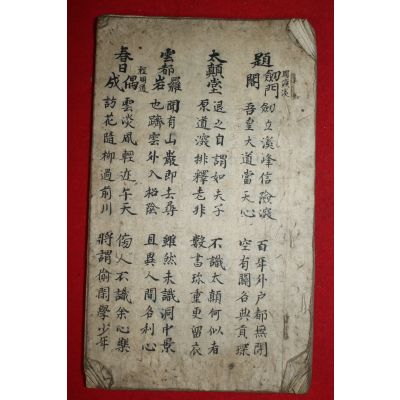 題釖門 周濂溪
釖立溪峰信險深 百年外户都無閉
吾皇大道當天心 空有關名典貢琛
太顛堂
退之自謂如夫子 不識太顛何似者
原道深排釋老非 數書珍重更留衣
雲都羅岩
聞有山巖即去尋 雖然未識洞中景
也躋雲外入松陰 且異人間名利心
春日偶成 程明道
雲淡風輕近午天 傍人不識余心樂
訪花隨柳過前川 將謂偷閒學少年